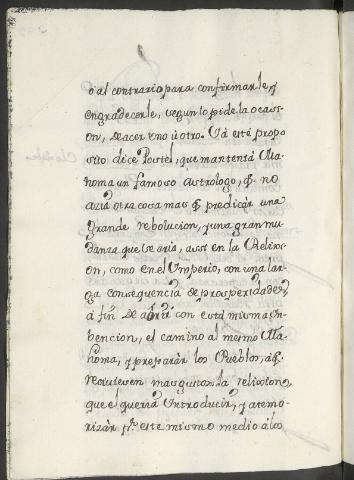 ó al contrario para confirmarle, y
engradecerle, segun lo pide la ocass-
on, de acer uno ú otro. Vá esté propo
sito dice Postel, que mantenia Ma-
homa un famoso Astrologo, q. no
avia otra cosa mas q. predicár una
grande rebolucion, y una gran mu-
danza que se aria, assi en la Relixi-
on, como en el Ymperio, con una lar-
ga consequencia de prosperidades,
á fin de abrir con esta misma in-
bencion, el camino al mesmo Ma-
homa, y preparár los Pueblos, á q.
reciviesen mas gustosos la relixion,
que el queria Yntroducir, y atemo-
rizár pr. este mismo medio á los